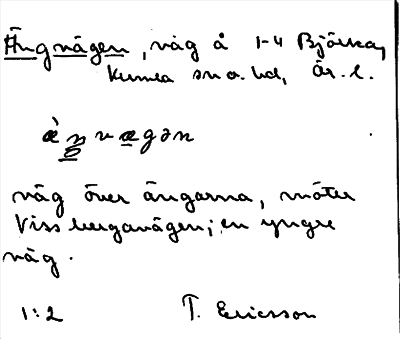 Ängvägen, väg å 1-4 Björka,
Kumla sn o. hd, Ör. l.
väg över ängarna, möter
Vissbergavägen; en yngre
väg.
1:2 T. Ericsson